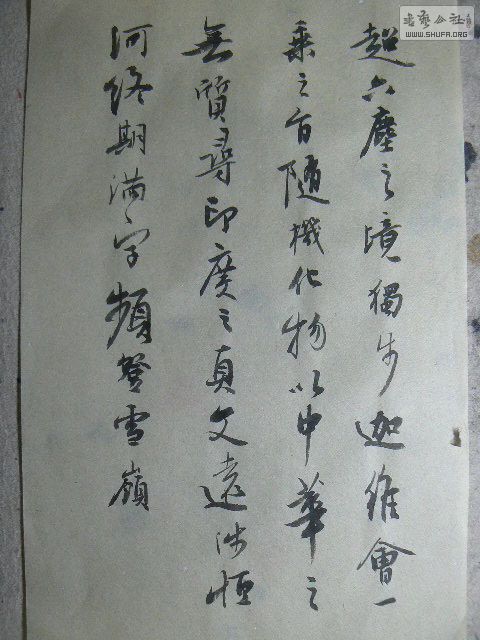 超六塵之境獨步迦維會一
乘之旨随機化物以中華之
無質尋印度之真文遠涉恒
河終期满字頻登雪嶺
書藝公社
WWW.SHUFA.ORG